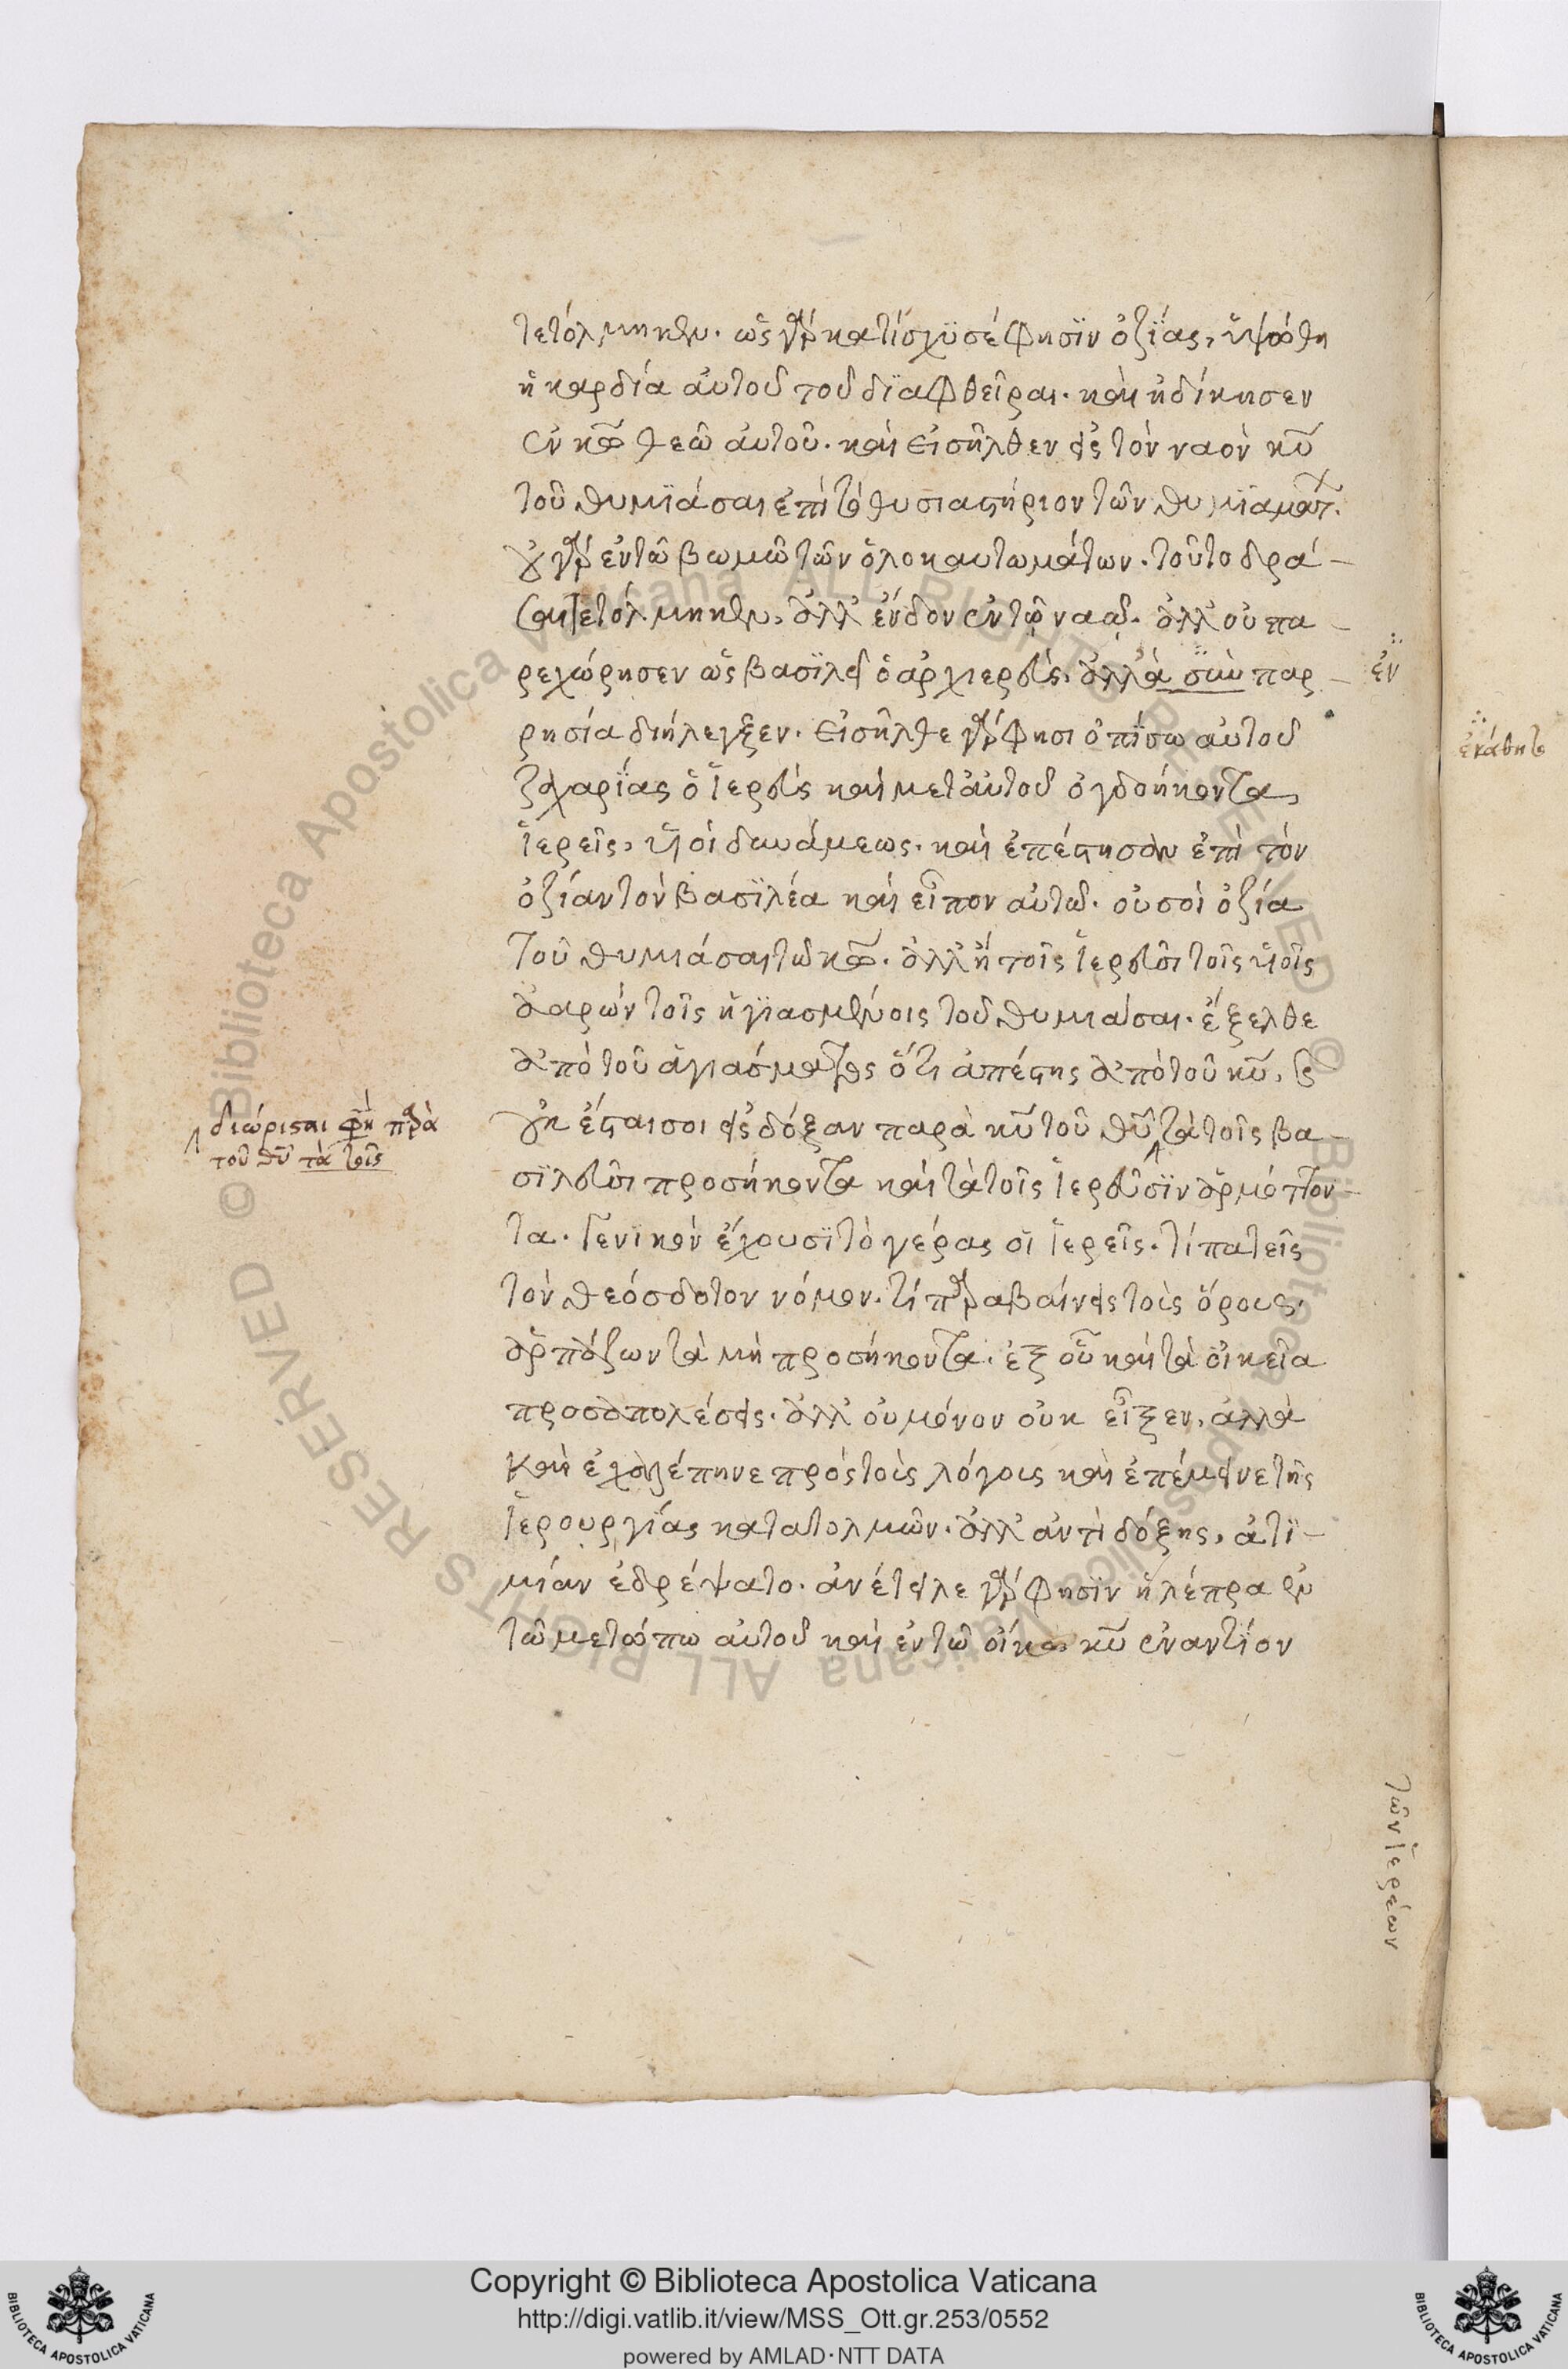 τετόλμηκεν. ὡς γὰρ κατίσχϋσέ φησϊν ὀζΐας, ὑψώθη
ἡ καρδία αὐτοῦ τοῦ δϊαφθεῖραι. καὶ ἠδίκησεν
ἐν κω θεῶ αὐτοῦ. καὶ εἰσῆλθεν εἰς τὸν ναὸν κυ
τοῦ θυμϊάσαι ἐπὶ τὸ θυσιαστήριον τῶν θυμϊαμάτ.
οὐ γὰρ ἐν τῶ βωμῶ τῶν ὁλοκαυτωμάτων. τοῦτο δρᾶ-
σαι τετόλμηκεν, ἀλλ' ἔνδον ἐν τῷ ναῷ. ἀλλ' οὐ πα-
ρεχώρησεν ὡς βασϊλεῖ ὁ ἀρχιερεύς. ἀλλὰ σὺν παρ-
ρησία διήλεγξεν. εἰσῆλθε γάρ φησι ὀπΐσω αὐτοῦ
ζαχαρΐας ὁ ἱερεὺς καὶ μετ' αὐτοῦ ὀγδοήκοντα,
ἱερεῖς, υἱοὶ δυνάμεως. καὶ ἐπέστησαν ἐπὶ τὸν
ὀζίαν τὸν βασϊλέα καὶ εἶπον αὐτῶ. οὐ σοὶ ὀζία
τοῦ θυμιάσαι τῶ κω. ἀλλ' ἢ τοῖς ἱερεῦσι τοῖς υἱοῖς
ἀαρὼν τοῖς ἡγϊασμένοις τοῦ θυμιάσαι. ἔξελθε
ἀπὸ τοῦ ἁγιάσματος ὅτι ἀπέστης ἀπὸ τοῦ κυ, καὶ
οὐκ ἔσται σοι εἰς δόξαν παρὰ κυ τοῦ θυ τὰ τοῖς βα-
σϊλεῦσι προσήκοντα καὶ τὰ τοῖς ἱερεῦσϊν ἁρμόττον-
τα. γενϊκὸν ἔχουσϊ τὸ γέρας οἱ ἱερεῖς. τί πατεῖς
τὸν θεόσδοτον νόμον. τί παραβαίνεις τοὺς ὅρους.
ἁρπάζων τὰ μὴ προσήκοντα. ἐξ οὗ καὶ τὰ οἰκεῖα
προσαπολέσεις. ἀλλ' οὐ μόνον οὐκ εἶξεν, ἀλλὰ
καὶ ἐχαλέπηνε πρὸς τοὺς λόγους καὶ ἐπέμεινε τῆς
ἱερουργΐας κατατολμῶν. ἀλλ' ἀντὶ δόξης, ἀτϊ-
μίαν ἐδρέψατο. ἀνέτειλε γάρ φησϊν ἡ λέπρα ἐν
τῶ μετώπω αὐτοῦ καὶ ἐν τῶ οἴκω κυ ἐναντΐον
διώρισται φη παρὰ
τοῦ θυ τὰ τοῖς
ἐν
ἐκάθητο
τῶν ἱερέων
Copyright © Biblioteca Apostolica Vaticana
http://digi.vatlib.it/view/MSS_Ott.gr.253/0552
powered by AMLAD·NTT DATA
BIBLIOTECA APOSTOLICA VATICANA
BIBLIOTECA APOSTOLICA VATICANA
© Biblioteca Apostolica Vaticana ALL RIGHTS RESERVED © Biblioteca Apostolica Vaticana ALL RIGHTS RESERVED